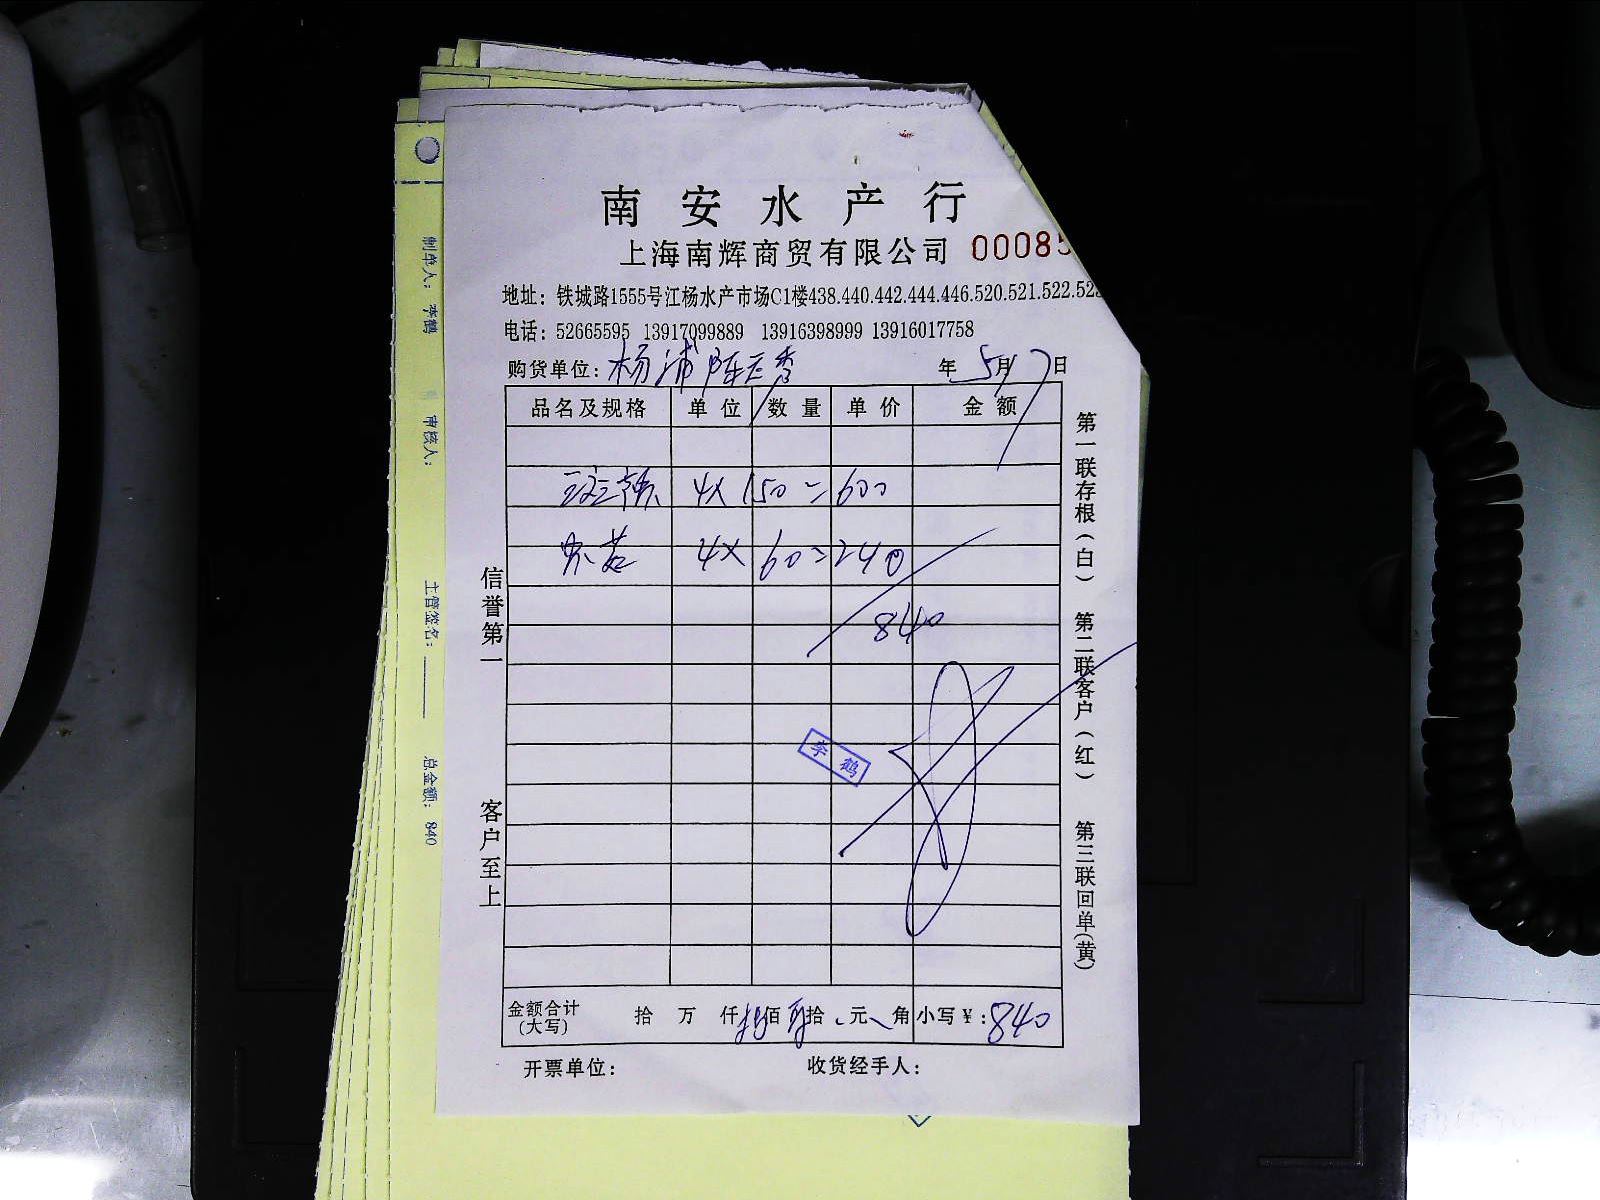 南安水产行
上海南辉商贸有限公司 00085
地址：铁城路1555号江杨水产市场C1楼438.440.442.444.446.520.521.522.523
电话：52665595 13917099889 13916398999 13916017758
购货单位：杨浦陈 秀 年5月7日
品名及规格 单位 数量 单价 金额
4×150=600
4×60=240
840
李鹤
金额合计(大写) 拾 万 仟 捌佰 肆拾 元 角 小写￥：840
开票单位： 收货经手人：
信誉第一
客户至上
第一联存根（白） 第二联客户（红） 第三联回单（黄）
制单人：李鹤 审核人： 主管签名：______ 总金额：840